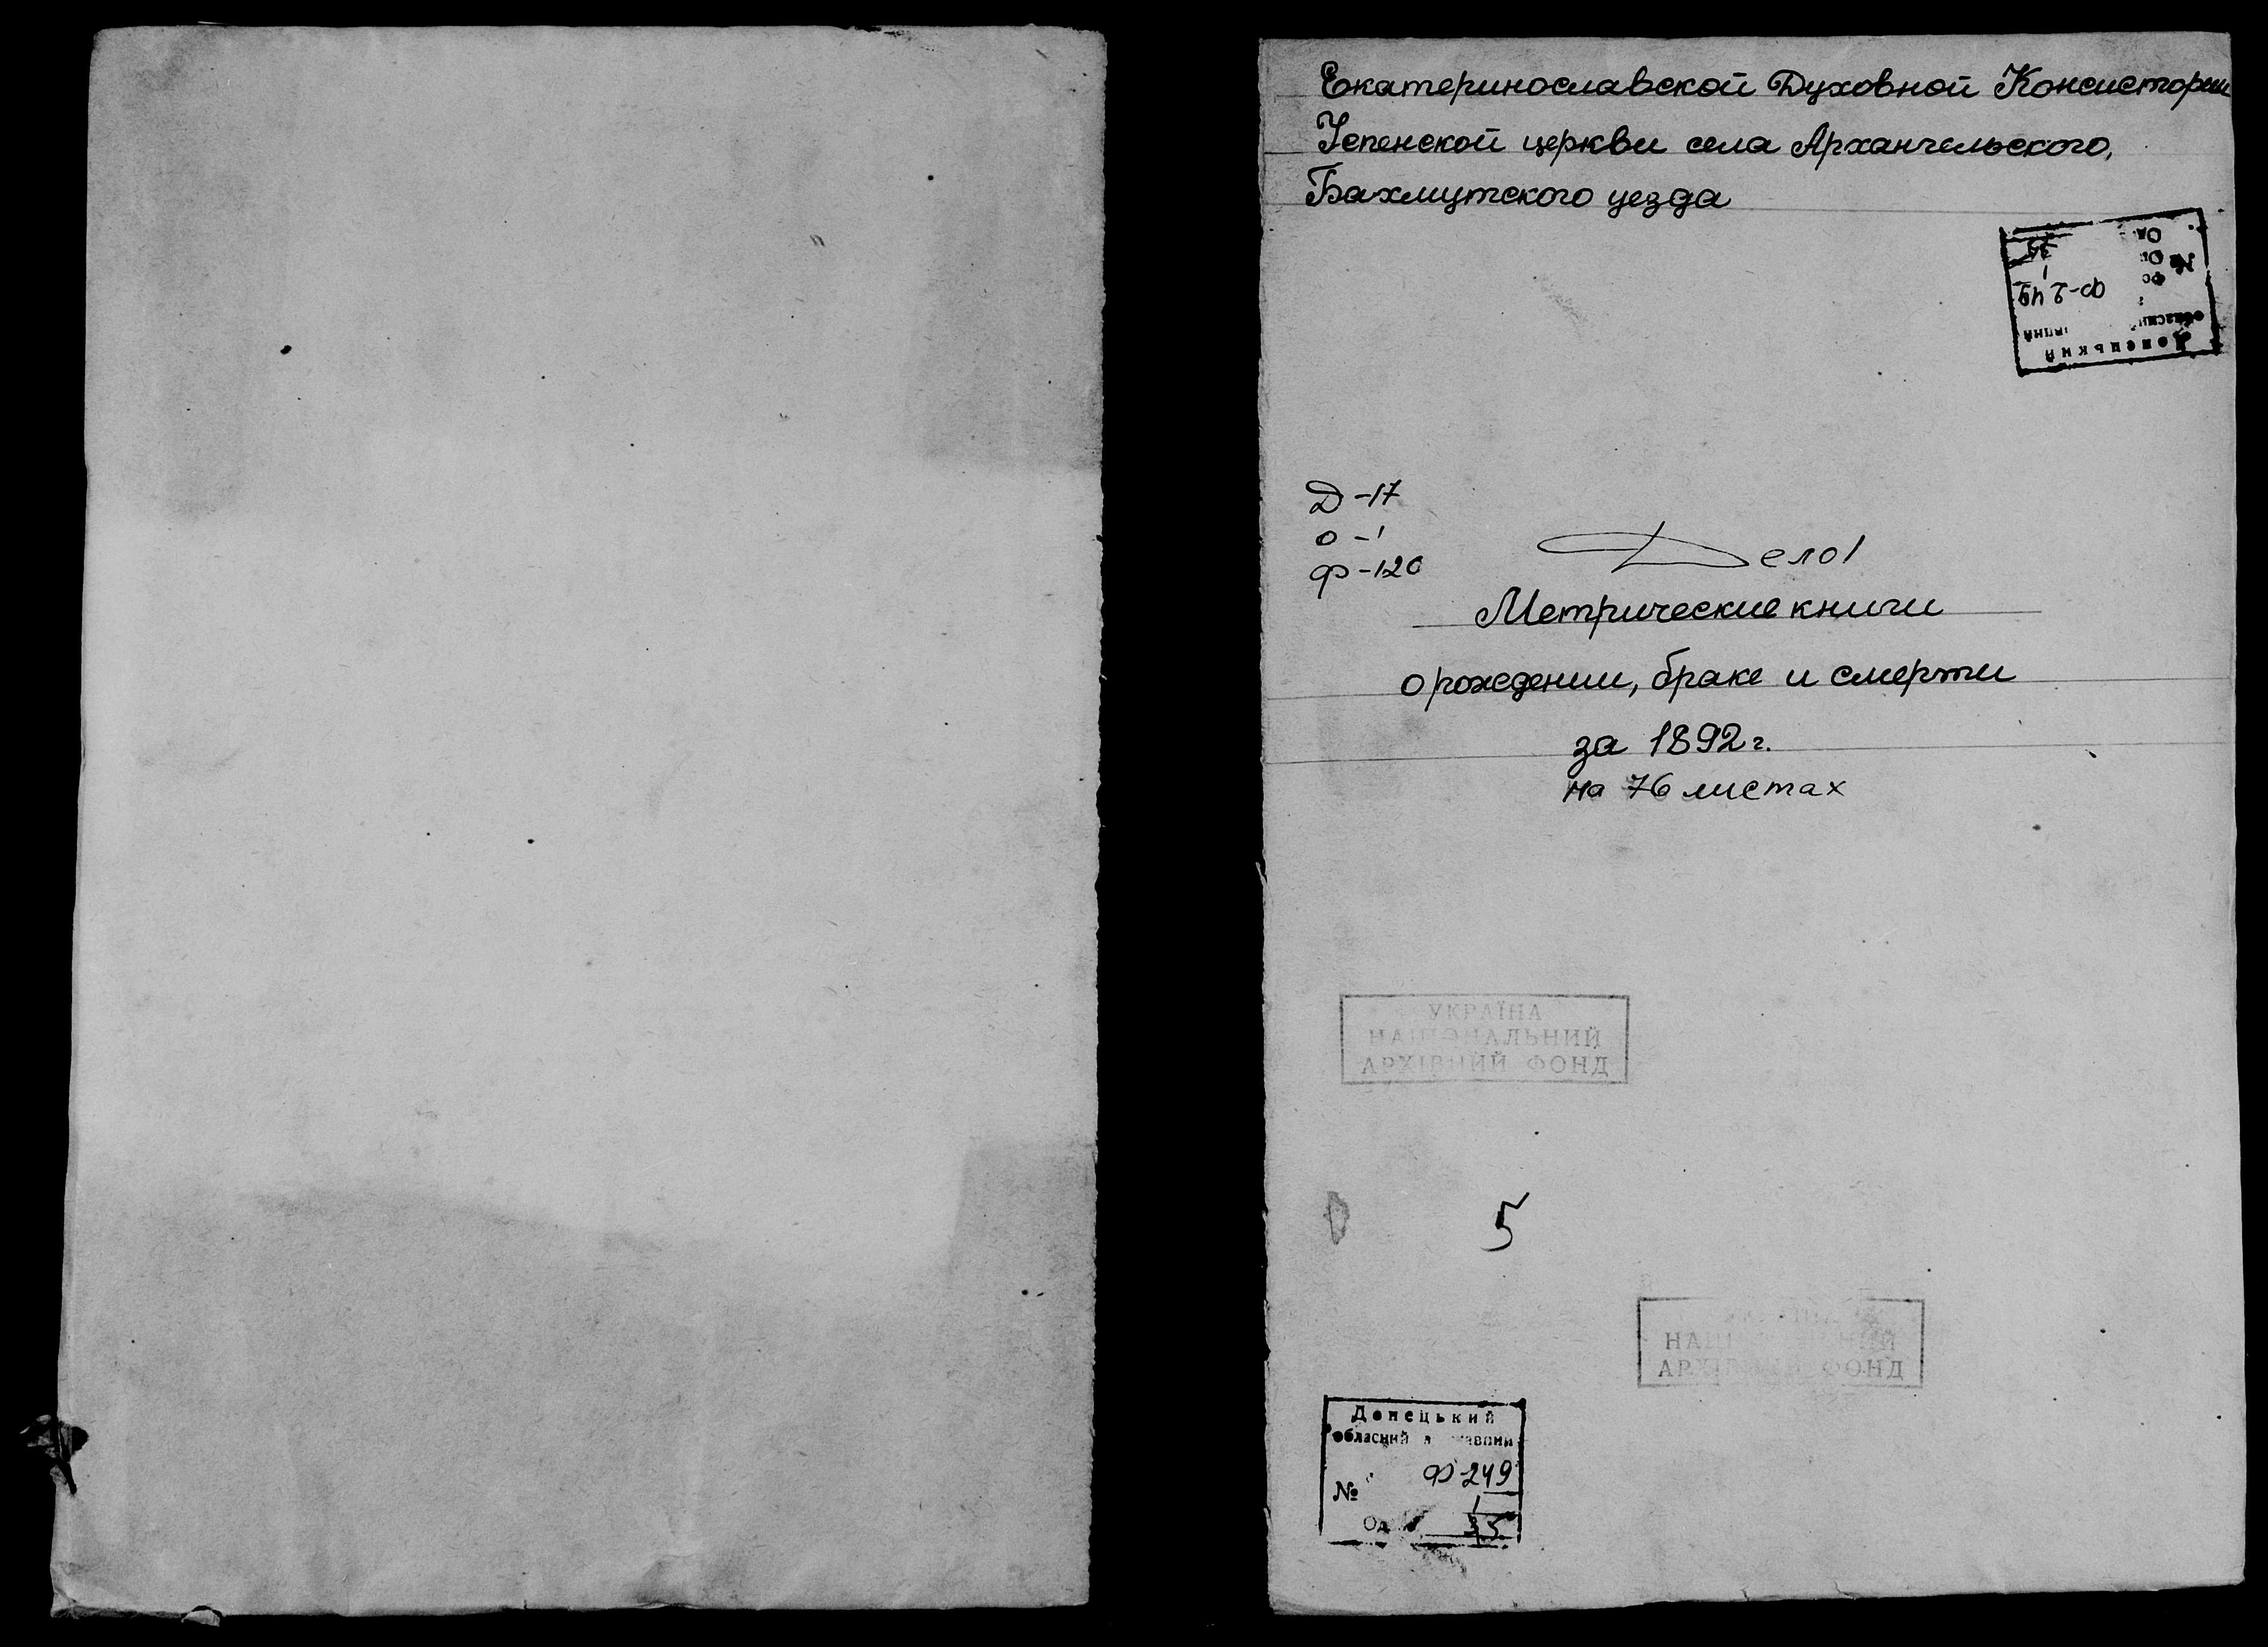 Екатеринославской Духовной Консистории
Успенской церкви села Архангельского,
Бахмутского уезда
Донецький
Ф-249
№
Д-17
о-1
Ф-120
Дело 1
Метрические книги
о рождении, браке и смерти
за 1892 г.
на 76 листах
УКРАЇНА
НАЦІОНАЛЬНИЙ
АРХІВНИЙ ФОНД
5
НАЦІОНАЛЬНИЙ
АРХІВНИЙ ФОНД
Донецький
обласний
Ф-249
№
1
Од